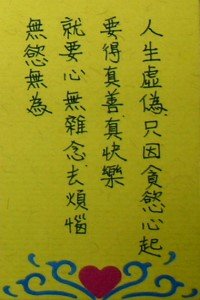 人生虛偽只因貪慾心起
要得真善真快樂
就要心無雜念去煩惱
無慾無為